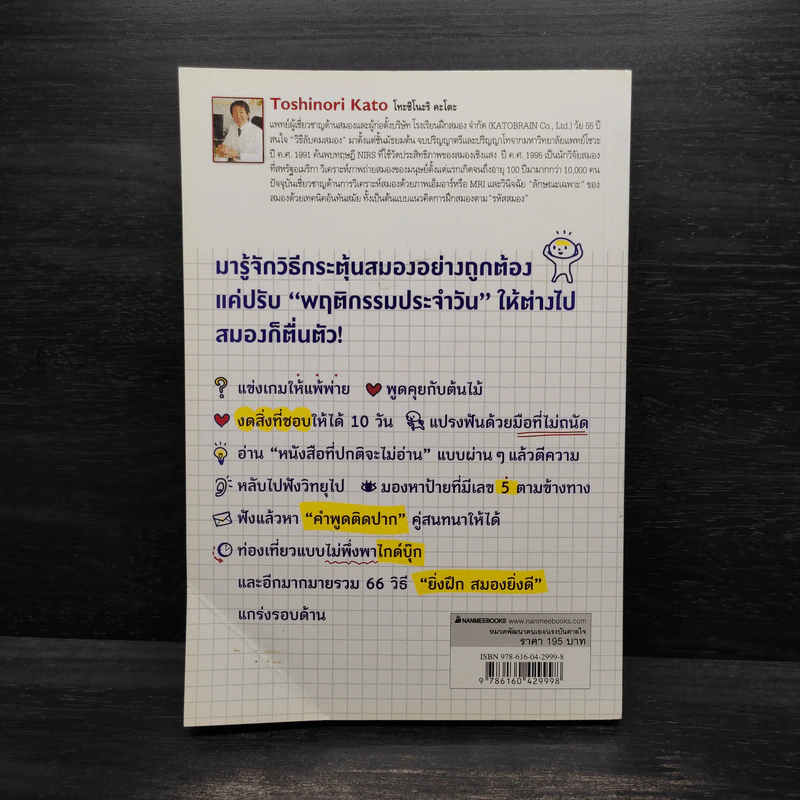 Toshinori Kato โทะชิโนะริ คะโตะ
แพทย์ผู้เชี่ยวชาญด้านสมองและผู้ก่อตั้งบริษัท โรงเรียนฝึกสมอง จำกัด (KATOBRAIN Co., Ltd.) วัย 55 ปี
สนใจ “วิธีลับคมสมอง” มาตั้งแต่ชั้นมัธยมต้น จบปริญญาตรีและปริญญาโทจากมหาวิทยาลัยแพทย์โชวะ
ปี ค.ศ. 1991 ค้นพบทฤษฎี NIRS ที่ใช้วัดประสิทธิภาพของสมองเชิงแสง ปี ค.ศ. 1995 เป็นนักวิจัยสมอง
ที่สหรัฐอเมริกา วิเคราะห์ภาพถ่ายสมองของมนุษย์ตั้งแต่แรกเกิดจนถึงอายุ 100 ปีมามากกว่า 10,000 คน
ปัจจุบันเชี่ยวชาญด้านการวิเคราะห์สมองด้วยภาพเอ็มอาร์หรือ MRI และวินิจฉัย “ลักษณะเฉพาะ” ของ
สมองด้วยเทคนิคอันทันสมัย ทั้งเป็นต้นแบบแนวคิดการฝึกสมองตาม “รหัสสมอง”
มารู้จักวิธีกระตุ้นสมองอย่างถูกต้อง
แค่ปรับ “พฤติกรรมประจำวัน” ให้ต่างไป
สมองก็ตื่นตัว!
แข่งเกมให้แพ้พ่าย พูดคุยกับต้นไม้
งดสิ่งที่ชอบให้ได้ 10 วัน แปรงฟันด้วยมือที่ไม่ถนัด
อ่าน “หนังสือที่ปกติจะไม่อ่าน” แบบผ่าน ๆ แล้วตีความ
หลับไปฟังวิทยุไป มองหาป้ายที่มีเลข 5 ตามข้างทาง
ฟังแล้วหา “คำพูดติดปาก” คู่สนทนาให้ได้
ท่องเที่ยวแบบไม่พึ่งพาไกด์บุ๊ก
และอีกมากมายรวม 66 วิธี “ยิ่งฝึก สมองยิ่งดี”
แกร่งรอบด้าน
NANMEEBOOKS www.nanmeebooks.com
หมวดพัฒนาตนเอง/แรงบันดาลใจ
ราคา 195 บาท
ISBN 978-616-04-2999-8
9 786160 429998